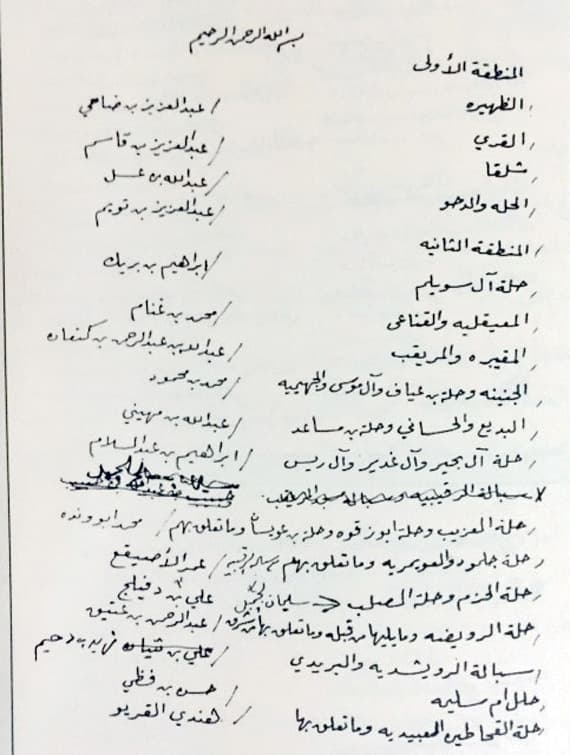 بسم الله الرحمن الرحيم
المنطقة الأولى
الظهيره / عبدالعزيز بن ضاحي
القري / عبدالعزيز بن قاسم
شلقا / عبدالله بن عسل
الحله والدحو / عبدالعزيز بن تويم
المنطقة الثانيه
حلة آل سويلم / ابراهيم بن بريك
المعيقليه والقناعى / محمد بن غنام
المقيبره والمريقب / عبدالله بن عبدالرحمن بن كنعان
الجنينه وحلة بن عياف وآل موسى والجهيميه / محمد بن محمود
البديع والحساني وحلة بن مساعد / عبدالله بن مهيني
حلة آل بحير وآل غدير وآل ريس / ابراهيم بن عبدالسلام
سبالة الرقيبيه
حلة العزيب وحلة ابوز قوه وحلة بن عويشا وماتعلق بهم / محمد ابو ونده
حلة جلمود والعويمريه وماتعلق بهم / عمر الأصيقع
حلة الحزم وحلة الصلب سليمان علي بن دفيلج
حلة الرويضه ومايليها من قبله وماتعلق بها من شرق / عبدالرحمن بن عتيق
سبالة الرويشديه والبريدي / علي بن فهيد بن دحيم
حلل ام سليمه / حسن بن فظي
حلة القحاطين المعبيديه وماتعلق بها / هندي القريو